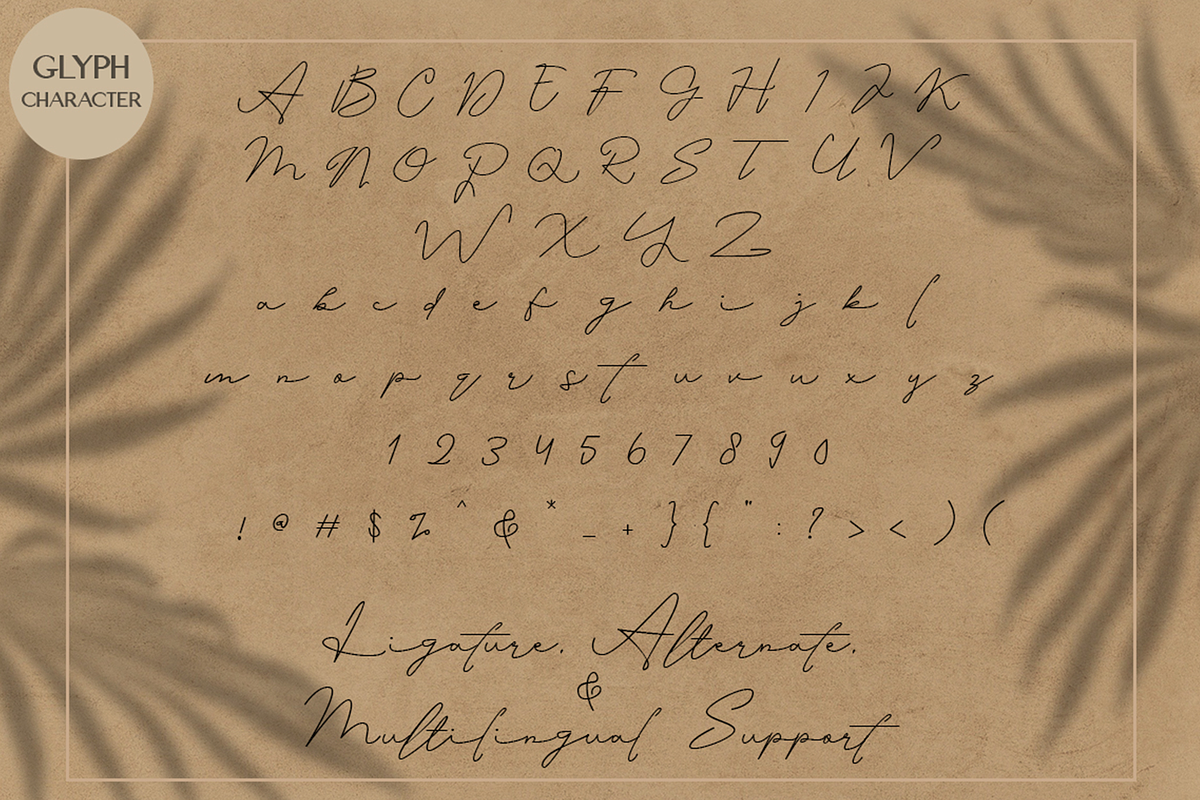 GLYPH
CHARACTER
A B C D E F G H I J K
M N O P Q R S T U V
W X Y Z
a b c d e f g h i j k l
m n o p q r s t u v w x y z
1 2 3 4 5 6 7 8 9 0
! @ # $ % ^ & * _ + } { " : ? > < ) (
Ligature. Alternate.
&
Multilingual Support